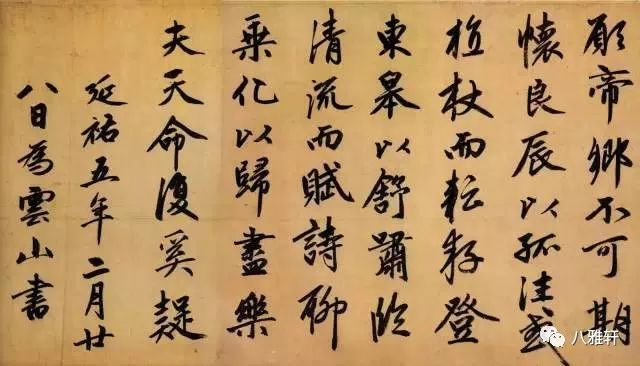 願帝鄉不可期
懷良辰以孤往或
植杖而耘耔登
東皋以舒嘯臨
清流而賦詩聊
乘化以歸盡樂
夫天命復奚疑
延祐五年二月廿
八日為雲山書
八雅轩